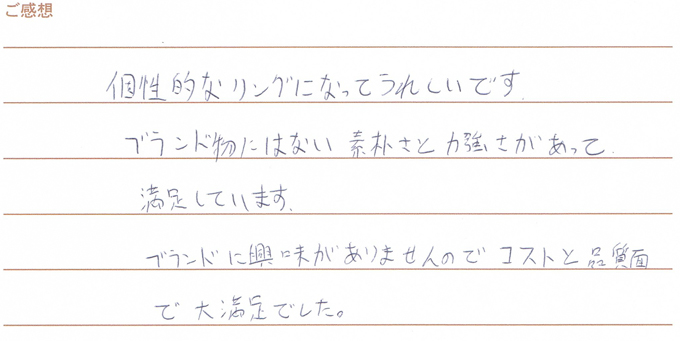 ご感想
個性的なリングになってうれしいです.
ブランド物にはない 素朴さと 力強さがあって.
満足しています.
ブランドに興味がありませんので コストと品質面
で 大満足でした。